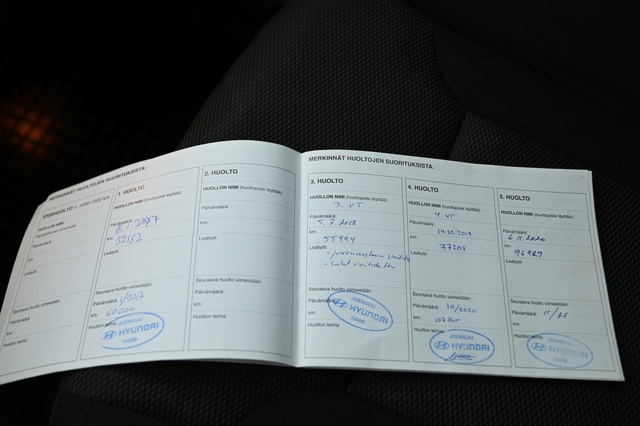 MERKINNÄT HUOLTOJEN SUORITUKSISTA:
HUOLLON NIMI
Päivämäärä:
km:
Lisätyöt:
Seuraava huolto viimeistään
Päivämäärä:
km:
Huollon leima:
1. HUOLTO
HUOLLON NIMI (huoltopiste täyttää):
Päivämäärä:
km:
32152
Lisätyöt:
Seuraava huolto viimeistään
Päivämäärä: 1/2017
km: 60000
Huollon leima:
JOENSUU
HYUNDAI
2. HUOLTO
HUOLLON NIMI (huoltopiste täyttää):
Päivämäärä:
km:
Lisätyöt:
Seuraava huolto viimeistään
Päivämäärä:
km:
Huollon leima:
MERKINNÄT HUOLTOJEN SUORITUKSISTA:
3. HUOLTO
HUOLLON NIMI (huoltopiste täyttää):
3. VT
Päivämäärä:
5.7.2018
km:
55994
Lisätyöt:
Seuraava huolto viimeistään
Päivämäärä:
km:
Huollon leima:
JOENSUU
HYUNDAI
4. HUOLTO
HUOLLON NIMI (huoltopiste täyttää):
4. VT
Päivämäärä:
14.10.2019
km:
77208
Lisätyöt:
Seuraava huolto viimeistään
Päivämäärä: 10/2020
km:
Huollon leima:
JOENSUU
HYUNDAI
5. HUOLTO
HUOLLON NIMI (huoltopiste täyttää):
Päivämäärä:
6.11.2020
km:
96989
Lisätyöt:
Seuraava huolto viimeistään
Päivämäärä: 11/21
km:
Huollon leima:
JOENSUU
HYUNDAI